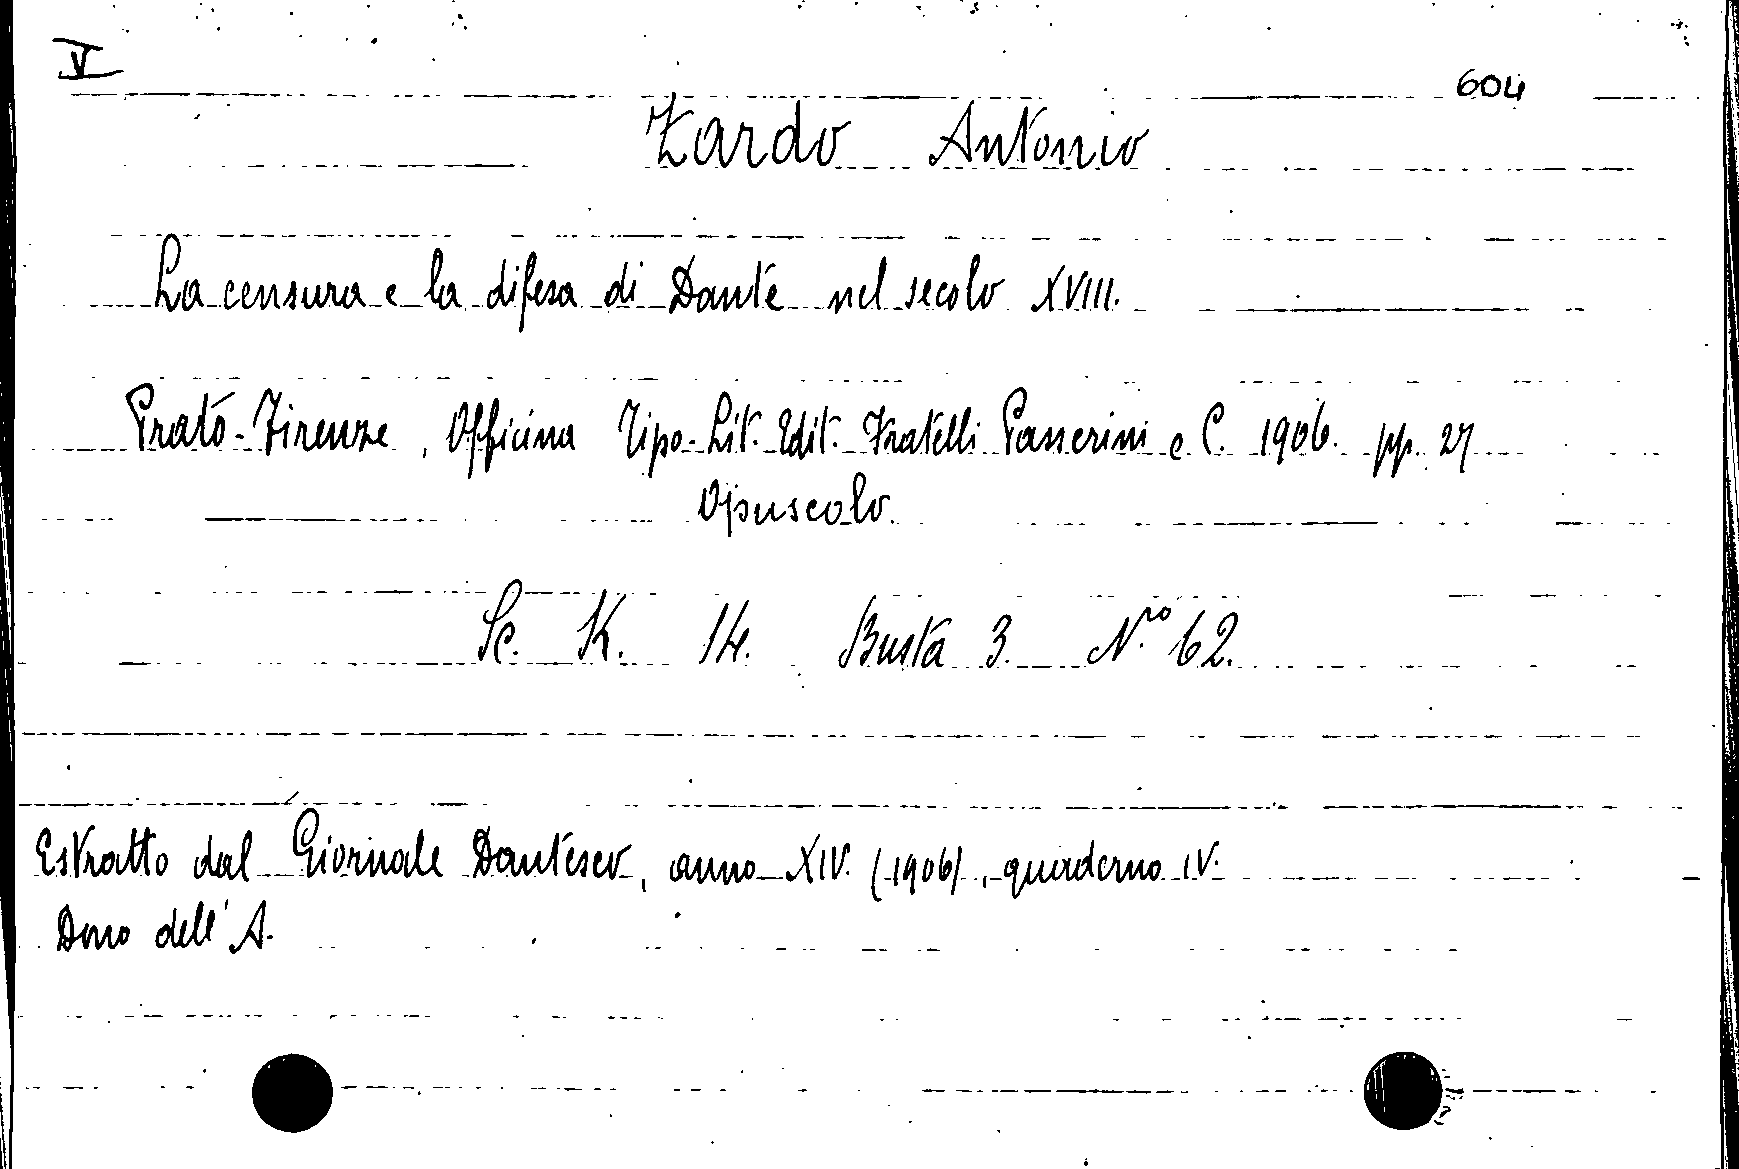 V
604
Zardo Antonio
La censura e la difesa di Dante nel secolo XVIII.
Prato-Firenze, Officina Tipo-Lit. Edit. Fratelli Passerini e C. 1906. pp. 27
Opuscolo.
Sc. K. 14. Busta 3. N.ro 62.
Estratto dal Giornale Dantesco, anno XIV. (1906), quaderno IV.
Dono dell'A.